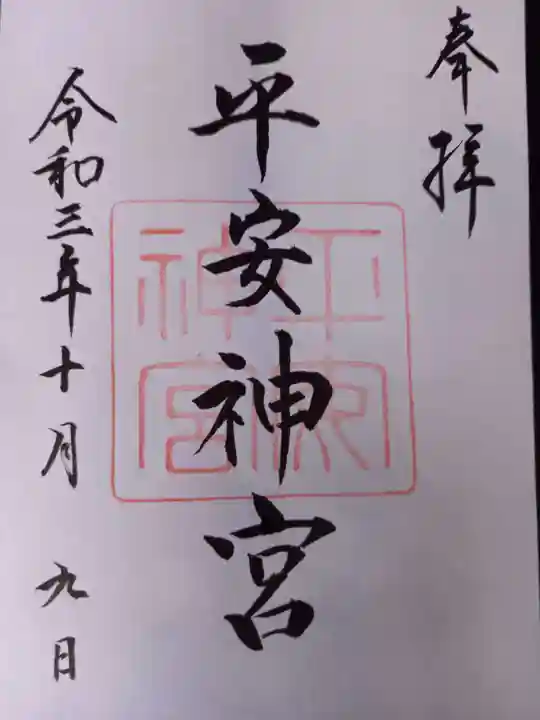 奉拝
平安神宮
平安神宮
令和三年十月九日